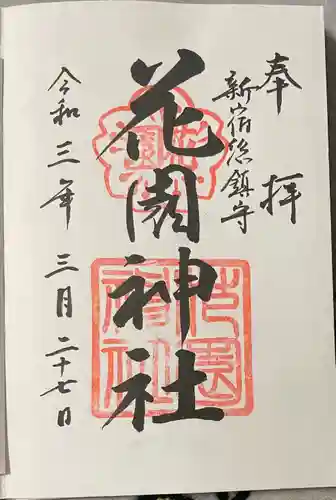 奉拝
新宿総鎮守
花園神社
令和三年三月二十七日
花園
花園神社